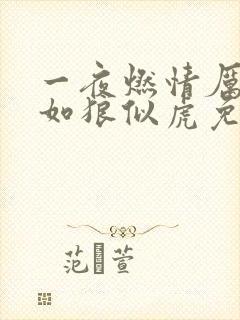 一夜燃情厉
如狼似虎免
范 萱